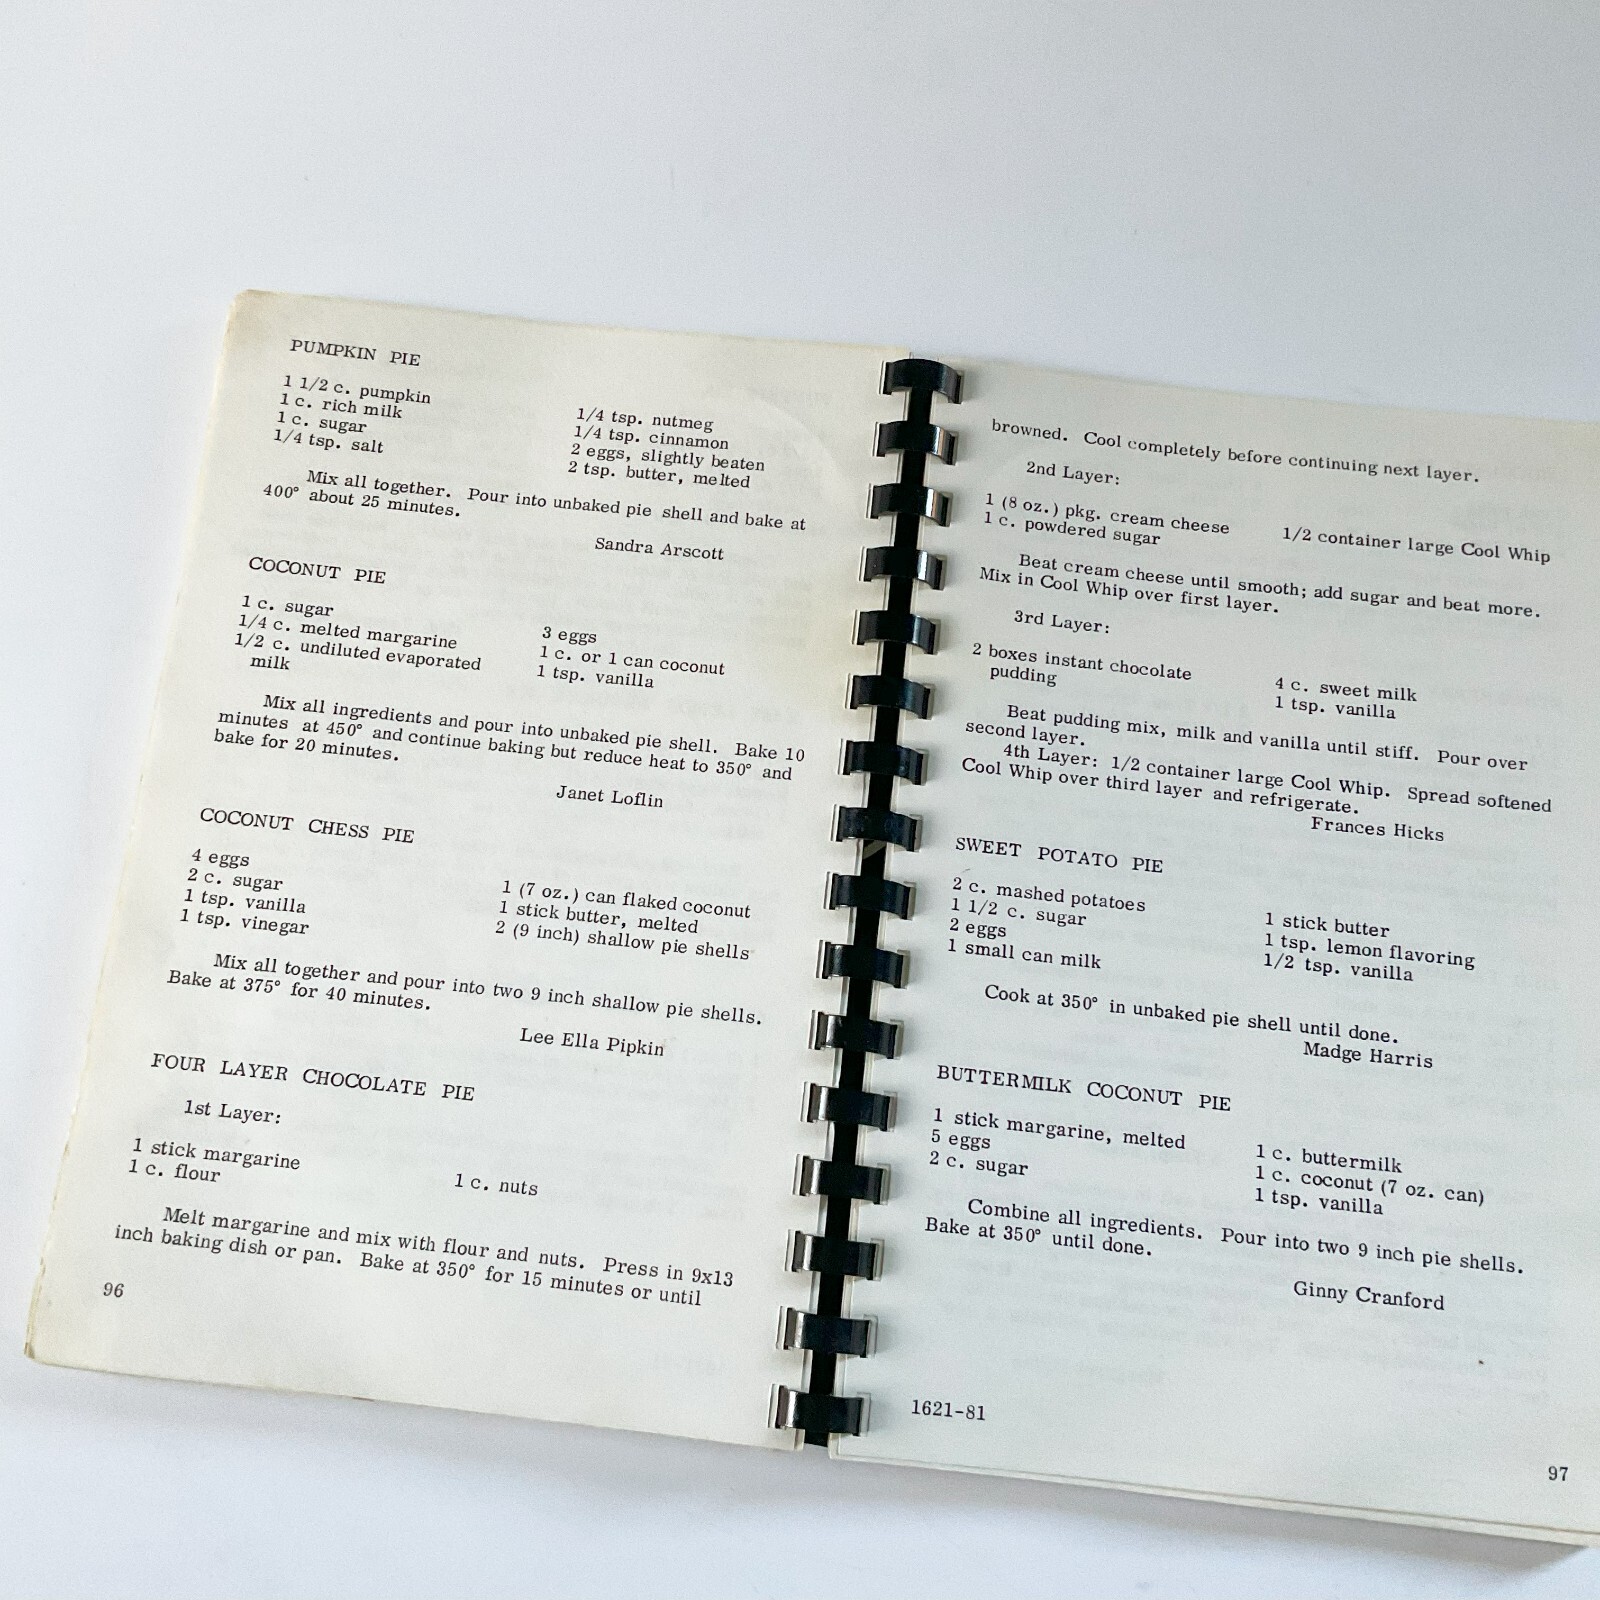 PUMPKIN PIE
1 1/2 c. pumpkin
1 c. rich milk
1 c. sugar
1/4 tsp. salt
1/4 tsp. nutmeg
1/4 tsp. cinnamon
2 eggs, slightly beaten
2 tsp. butter, melted
Mix all together. Pour into unbaked pie shell and bake at
400° about 25 minutes.
Sandra Arscott
COCONUT PIE
1 c. sugar
1/4 c. melted margarine
1/2 c. undiluted evaporated
milk
3 eggs
1 c. or 1 can coconut
1 tsp. vanilla
Mix all ingredients and pour into unbaked pie shell. Bake 10
minutes at 450° and continue baking but reduce heat to 350° and
bake for 20 minutes.
Janet Loflin
COCONUT CHESS PIE
4 eggs
2 c. sugar
1 tsp. vanilla
1 tsp. vinegar
1 (7 oz.) can flaked coconut
1 stick butter, melted
2 (9 inch) shallow pie shells
Mix all together and pour into two 9 inch shallow pie shells.
Bake at 375° for 40 minutes.
Lee Ella Pipkin
FOUR LAYER CHOCOLATE PIE
1st Layer:
1 stick margarine
1 c. flour
1 c. nuts
Melt margarine and mix with flour and nuts. Press in 9x13
inch baking dish or pan. Bake at 350° for 15 minutes or until
96
browned. Cool completely before continuing next layer.
2nd Layer:
1 (8 oz.) pkg. cream cheese
1 c. powdered sugar
1/2 container large Cool Whip
Beat cream cheese until smooth; add sugar and beat more.
Mix in Cool Whip over first layer.
3rd Layer:
2 boxes instant chocolate
pudding
4 c. sweet milk
1 tsp. vanilla
Beat pudding mix, milk and vanilla until stiff. Pour over
second layer.
4th Layer: 1/2 container large Cool Whip. Spread softened
Cool Whip over third layer and refrigerate.
Frances Hicks
SWEET POTATO PIE
2 c. mashed potatoes
1 1/2 c. sugar
2 eggs
1 small can milk
1 stick butter
1 tsp. lemon flavoring
1/2 tsp. vanilla
Cook at 350° in unbaked pie shell until done.
Madge Harris
BUTTERMILK COCONUT PIE
1 stick margarine, melted
5 eggs
2 c. sugar
1 c. buttermilk
1 c. coconut (7 oz. can)
1 tsp. vanilla
Combine all ingredients. Pour into two 9 inch pie shells.
Bake at 350° until done.
Ginny Cranford
1621-81
97